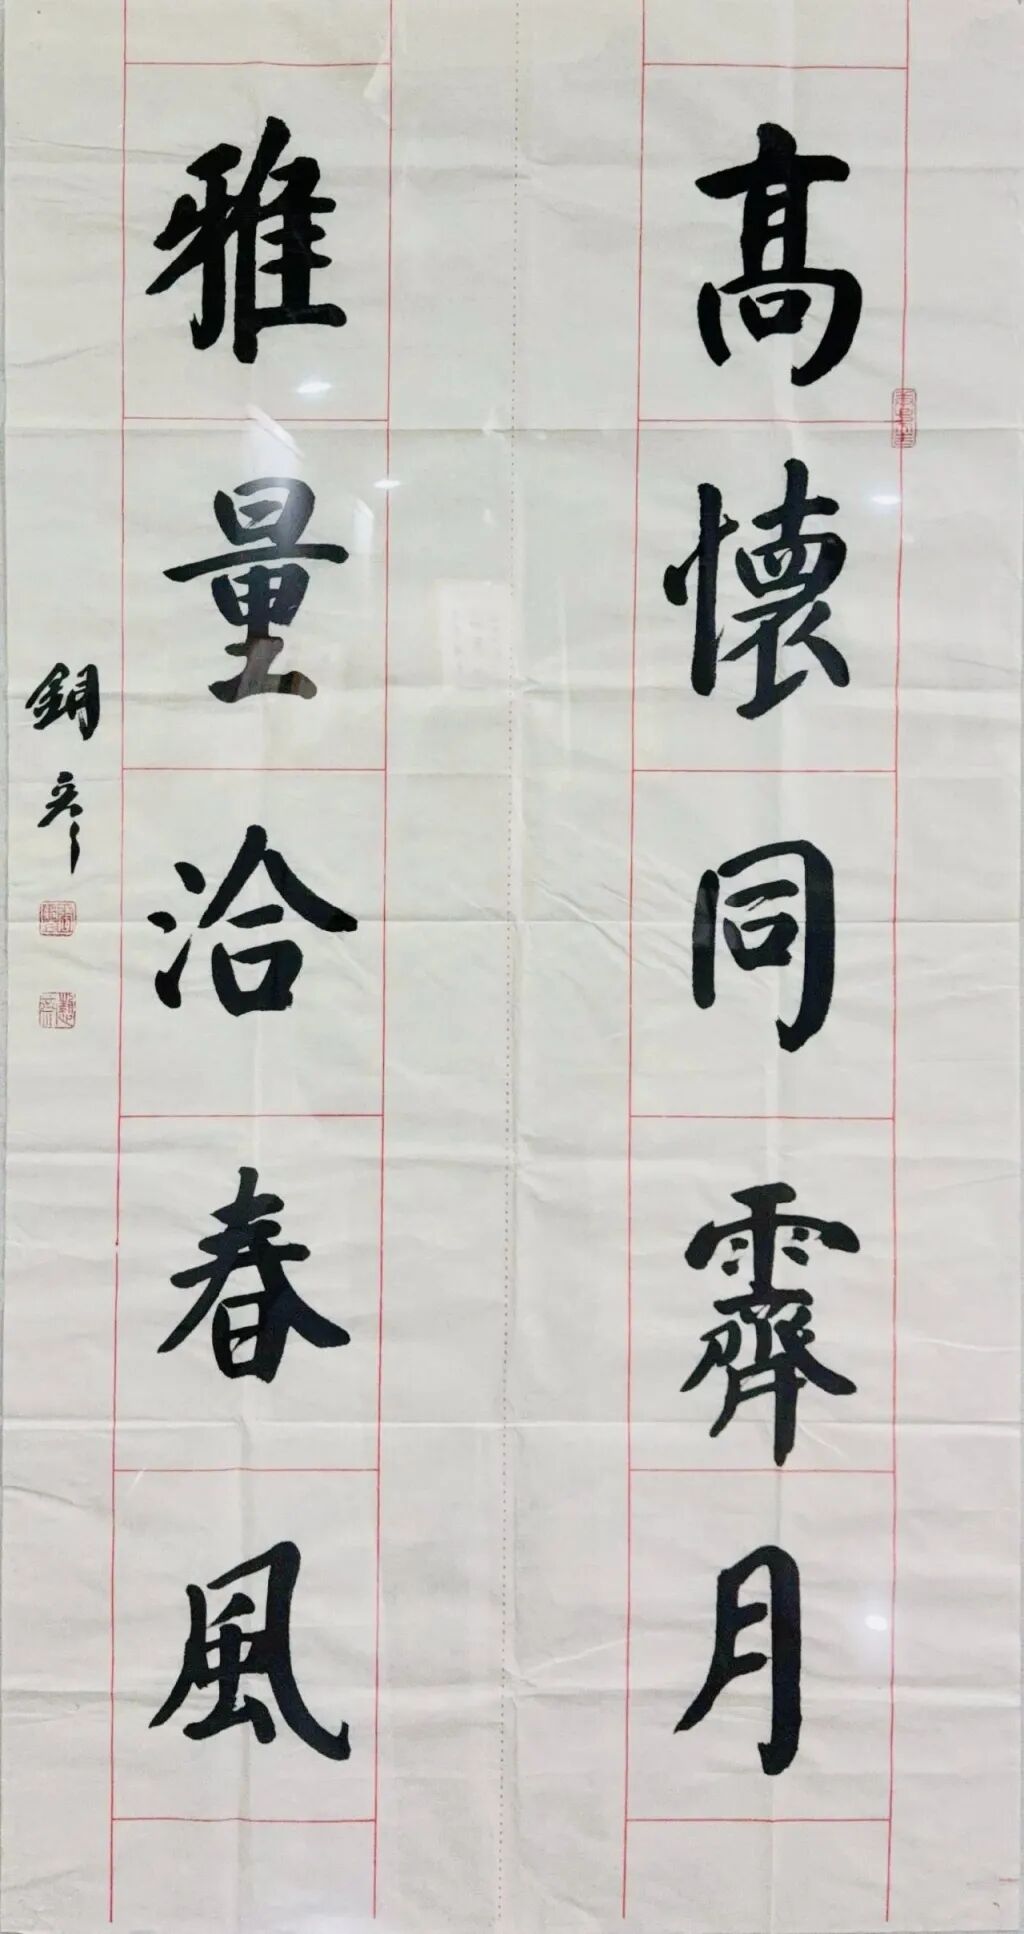 高懷同霽月
雅量洽春風
銅彥